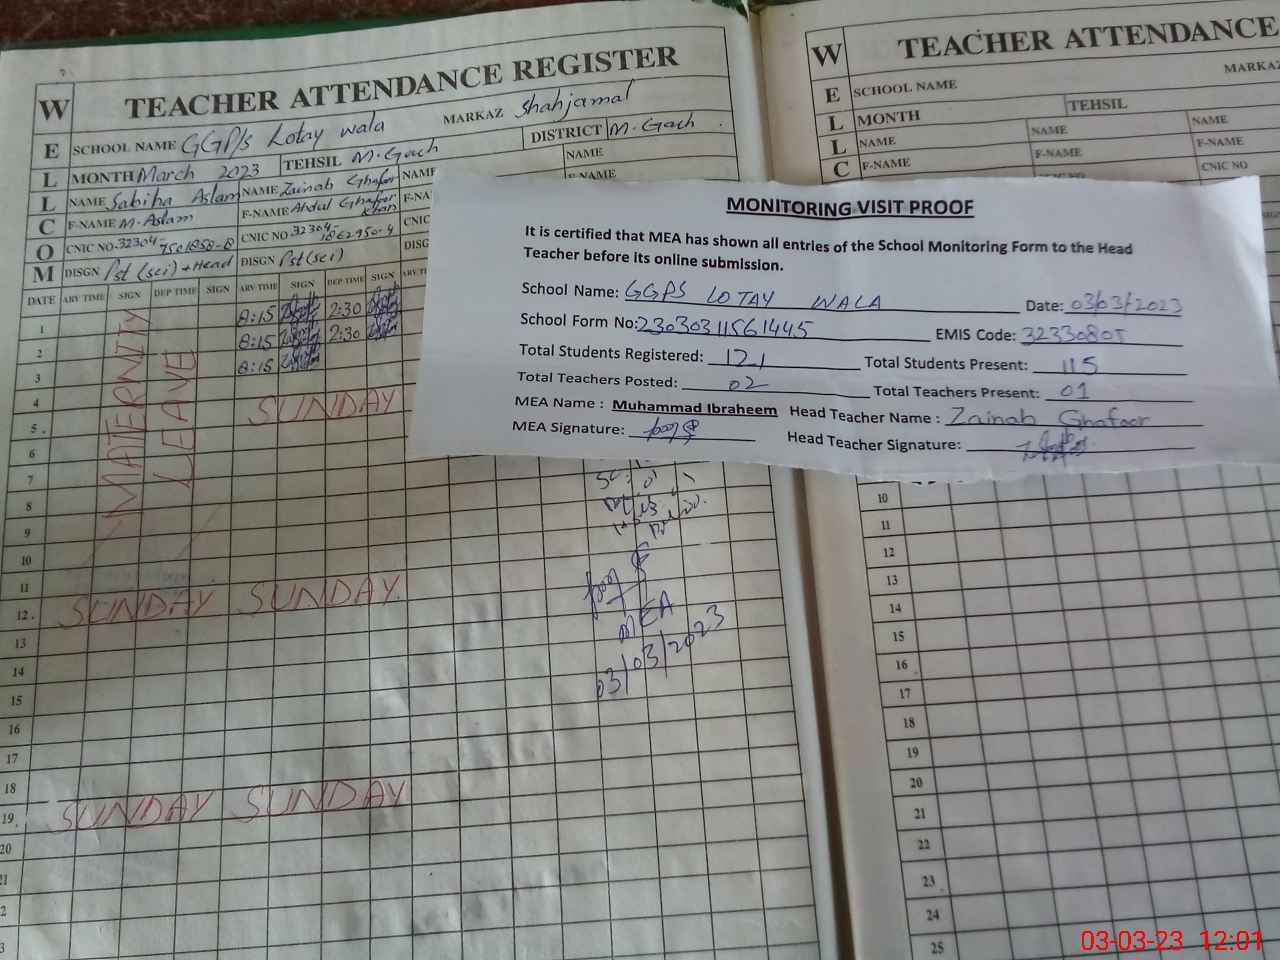 W TEACHER ATTENDANCE REGISTER
E SCHOOL NAME GGP/s Lotay wala MARKAZ Shahjamal
L MONTH March 2023 TEHSIL M.Garh DISTRICT M.Garh
L NAME Sabiha Aslam NAME Zainab Ghafoor NAME NAME
C F-NAME M.Aslam F-NAME Abdul Ghafoor Khan F-NA F-NAME
O CNIC NO. CNIC NO CNIC
M DISGN Pst (sci) + Head DISGN Pst (sci) DISG
DATE ARV TIME SIGN DEP TIME SIGN ARV TIME SIGN DEP TIME SIGN ARV TI
1 8:15 2:30
2 8:15 2:30
3 8:15
MATERNITY
LEAVE
4
5 SUNDAY
6
7
8
9
10
11
12 SUNDAY SUNDAY
13
14
15
16
17
18
19 SUNDAY SUNDAY
20
MEA
03/03/2023
MONITORING VISIT PROOF
It is certified that MEA has shown all entries of the School Monitoring Form to the Head
Teacher before its online submission.
School Name: GGPS LOTAY WALA Date: 03/03/2023
School Form No: 23030311561445 EMIS Code: 32330805
Total Students Registered: 121 Total Students Present: 115
Total Teachers Posted: 02 Total Teachers Present: 01
MEA Name : Muhammad Ibraheem Head Teacher Name : Zainab Ghafoor
MEA Signature: Head Teacher Signature:
W TEACHER ATTENDANCE
E SCHOOL NAME MARKAZ
L MONTH TEHSIL
L NAME NAME NAME
C F-NAME F-NAME F-NAME
CNIC NO
10
11
12
13
14
15
16
17
18
19
20
21
22
23
24
25
03-03-23 12:01